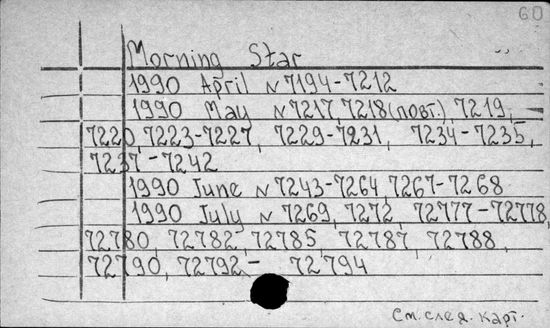 60
Morning Star
1990 April N 7194-7212
1990 May N 7217, 7218 (повт.), 7219,
7220, 7223-7227, 7229-7231, 7234-7235,
7237-7242
1990 June N 7243-7264, 7267-7268
1990 July N 7269, 7272, 72777-72778,
72780, 72782, 72785, 72787, 72788,
72790, 72792 - 72794
См. след. карт.